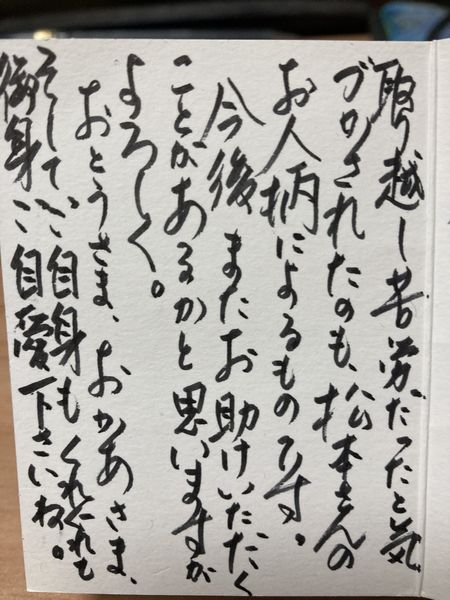 取り越し苦労だったと気
づかされたのも、松本さんの
お人柄によるものです。
今後またお助けいただく
ことがあるかと思いますが
よろしく。
おとうさま、おかあさま、
そしてご自身もくれぐれも
御身ご自愛下さいね。